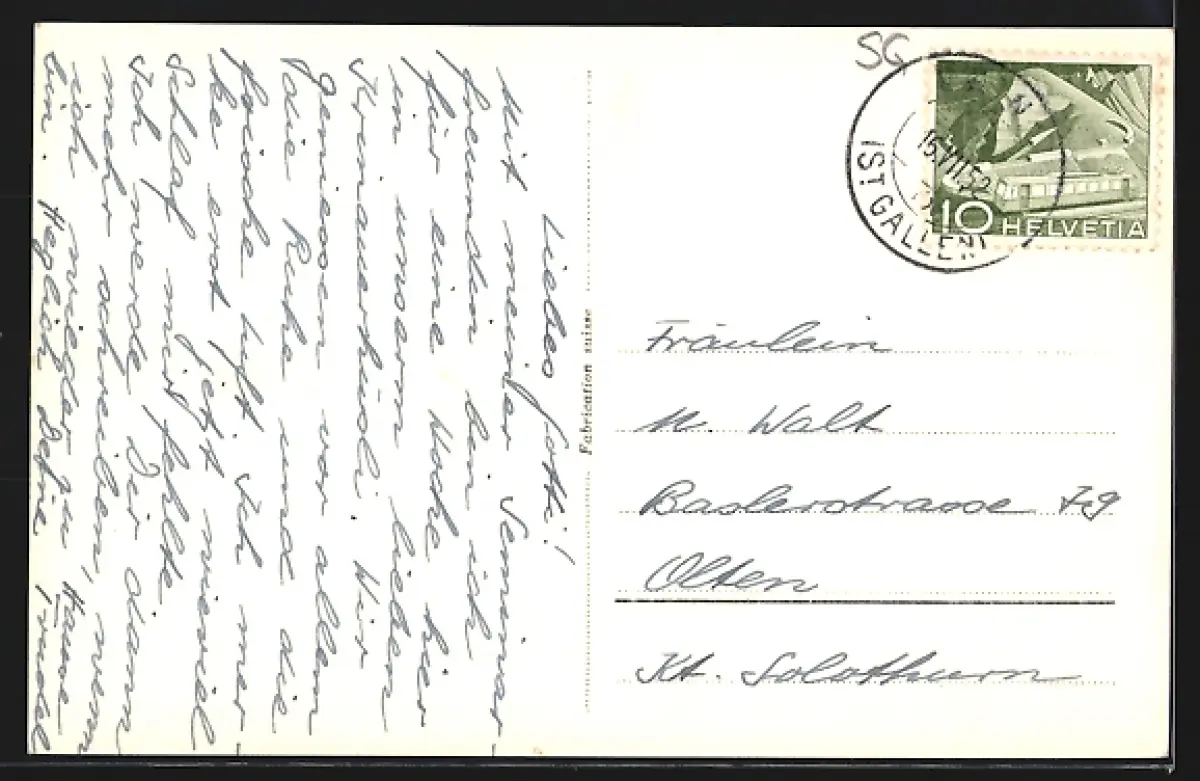 Liebes Gotti!
Mit meiner Seminar-
freundin bin ich
für eine Woche hier
in unserm lieben
Krinauerhüsli. Wir
geniessen vor allem
die Ruhe und die
frische Luft. Ich mer-
ke erst jetzt wieviel
Schlaf mir fehlte.
Ich werde Dir dann
mehr schreiben, wenn
ich wieder zu Hause
bin. Herzlich Deine Trudel
Fabrication suisse
SG
15.VII.52
(ST GALLEN)
10 HELVETIA
Fräulein
M. Walt
Baslerstrasse 79
Olten
Kt. Solothurn